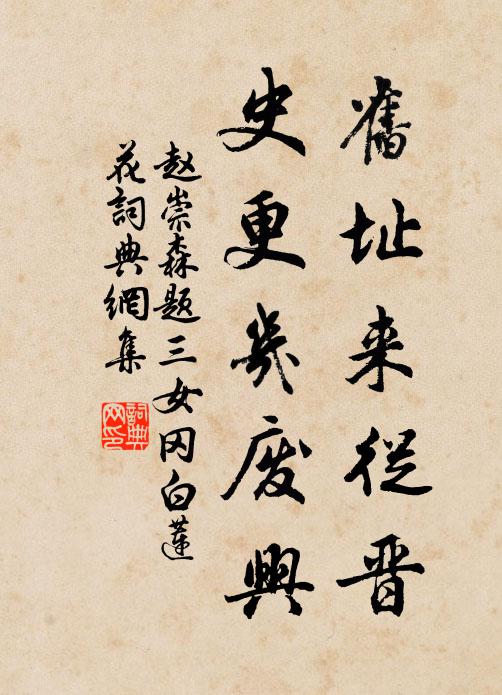 舊址来從晋
史更幾廢興
赵崇森题三女冈白莲
花詞典網集
詞典
网印